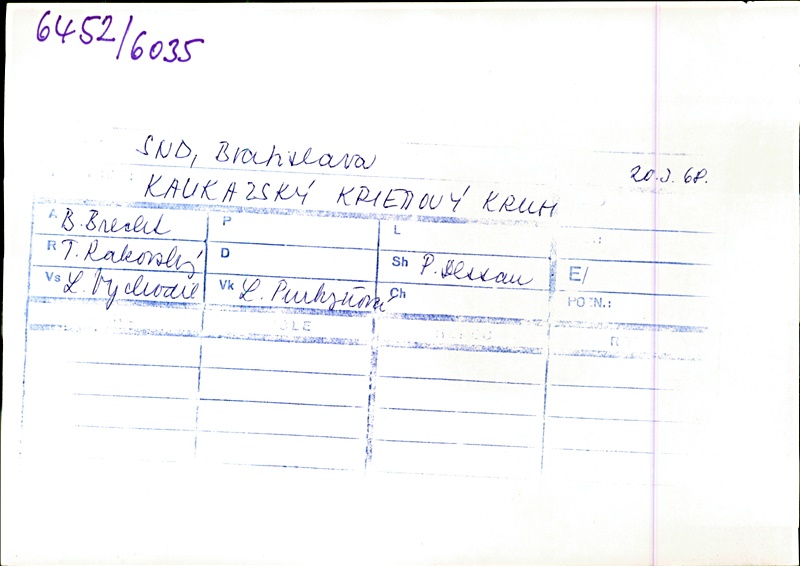 6452/6035
SND, Bratislava
20.3.68.
KAUKAZSKÝ KRIEDOVÝ KRUH
A B. Brecht P L
R T. Rakovský D Sh P. Dessau E/
Vs L. Vychodil Vk L. Purkyňová Ch POZN.:
R